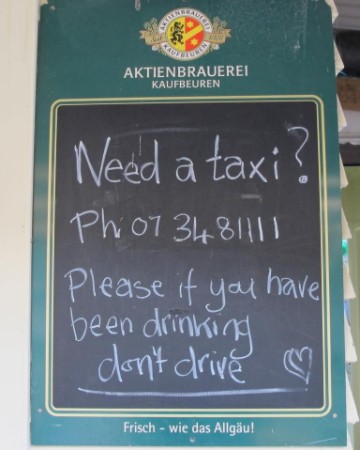 AKTIENBRAUEREI
KAUFBEUREN
AKTIENBRAUEREI
KAUFBEUREN
Need a taxi?
Ph: 07 3481111
Please if you have
been drinking
don't drive
Frisch - wie das Allgäu!